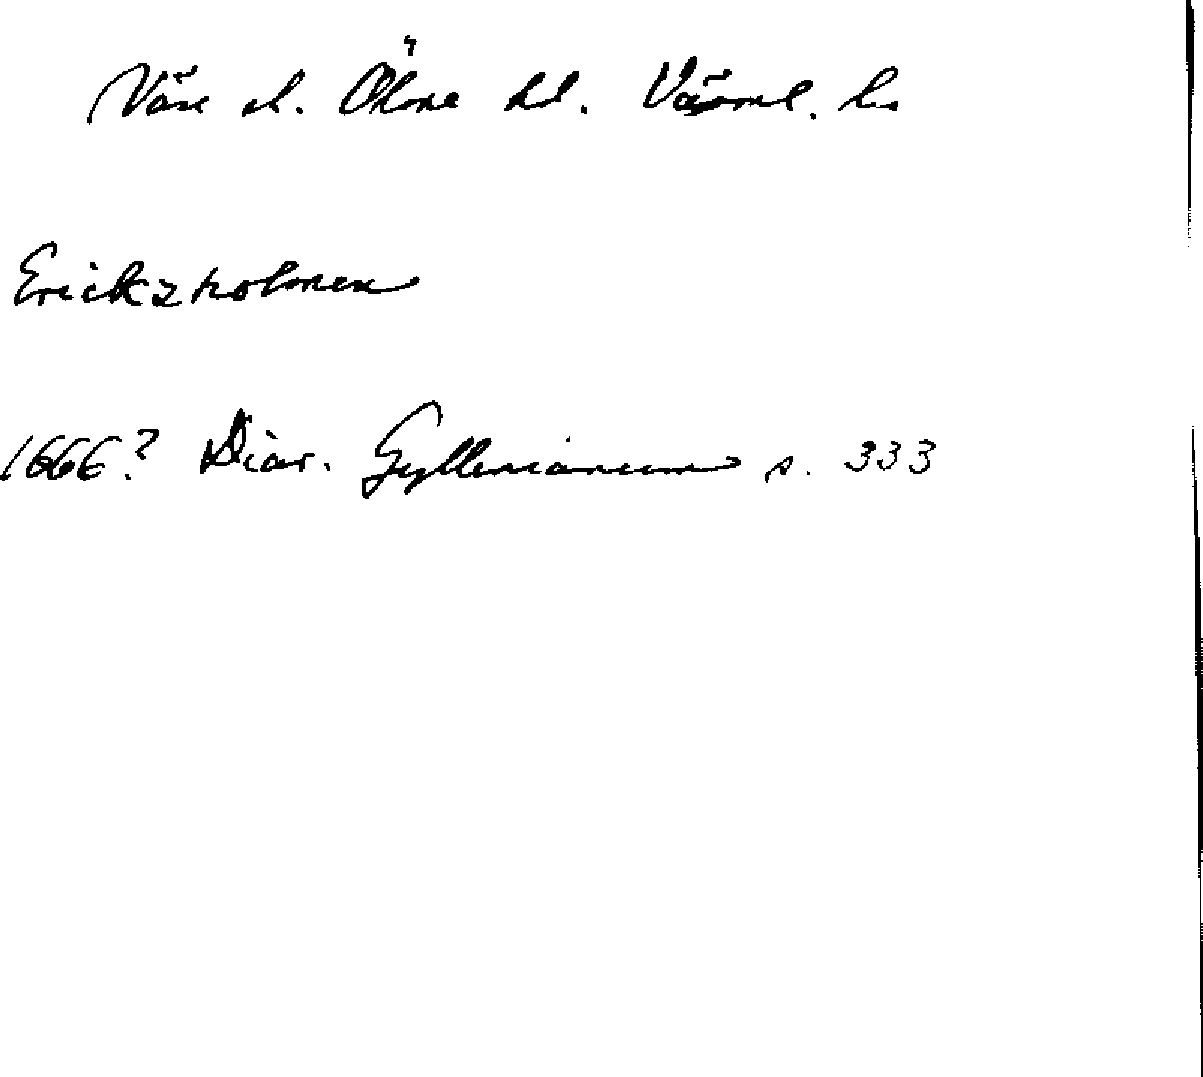 Väse sd. Ölme hd. Värml. l.
Erickzholmen
1666? Diar. Gyllenianum s. 333